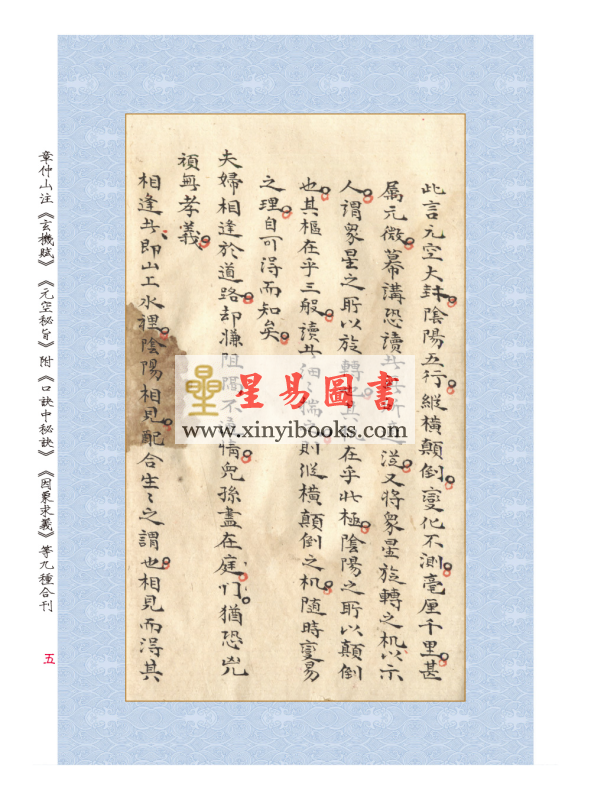 此言元空大卦陰陽五行縱橫顛倒變化不測毫厘千里甚
属元微幕講恐讀者 又將眾星旋轉之机以示
人謂眾星之所以旋轉 其 在乎北極陰陽之所以顛倒
也其樞在乎三般讀者細〻揣 則縱橫顛倒之机随時變易
之理自可得而知矣
夫婦相逢於道路却慊阻隔不 情兒孫盡在庭们猶恐兇
頑無孝義
相逢者即山上水裡陰陽相見配合生〻之謂也相見而得其
星易圖書
www.xinyibooks.com
章仲山注《玄機賦》《元空秘旨》附《口訣中秘訣》《因果求義》等九種合刊
五